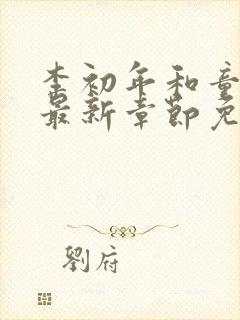 李初年和童
最新章節免
劉府